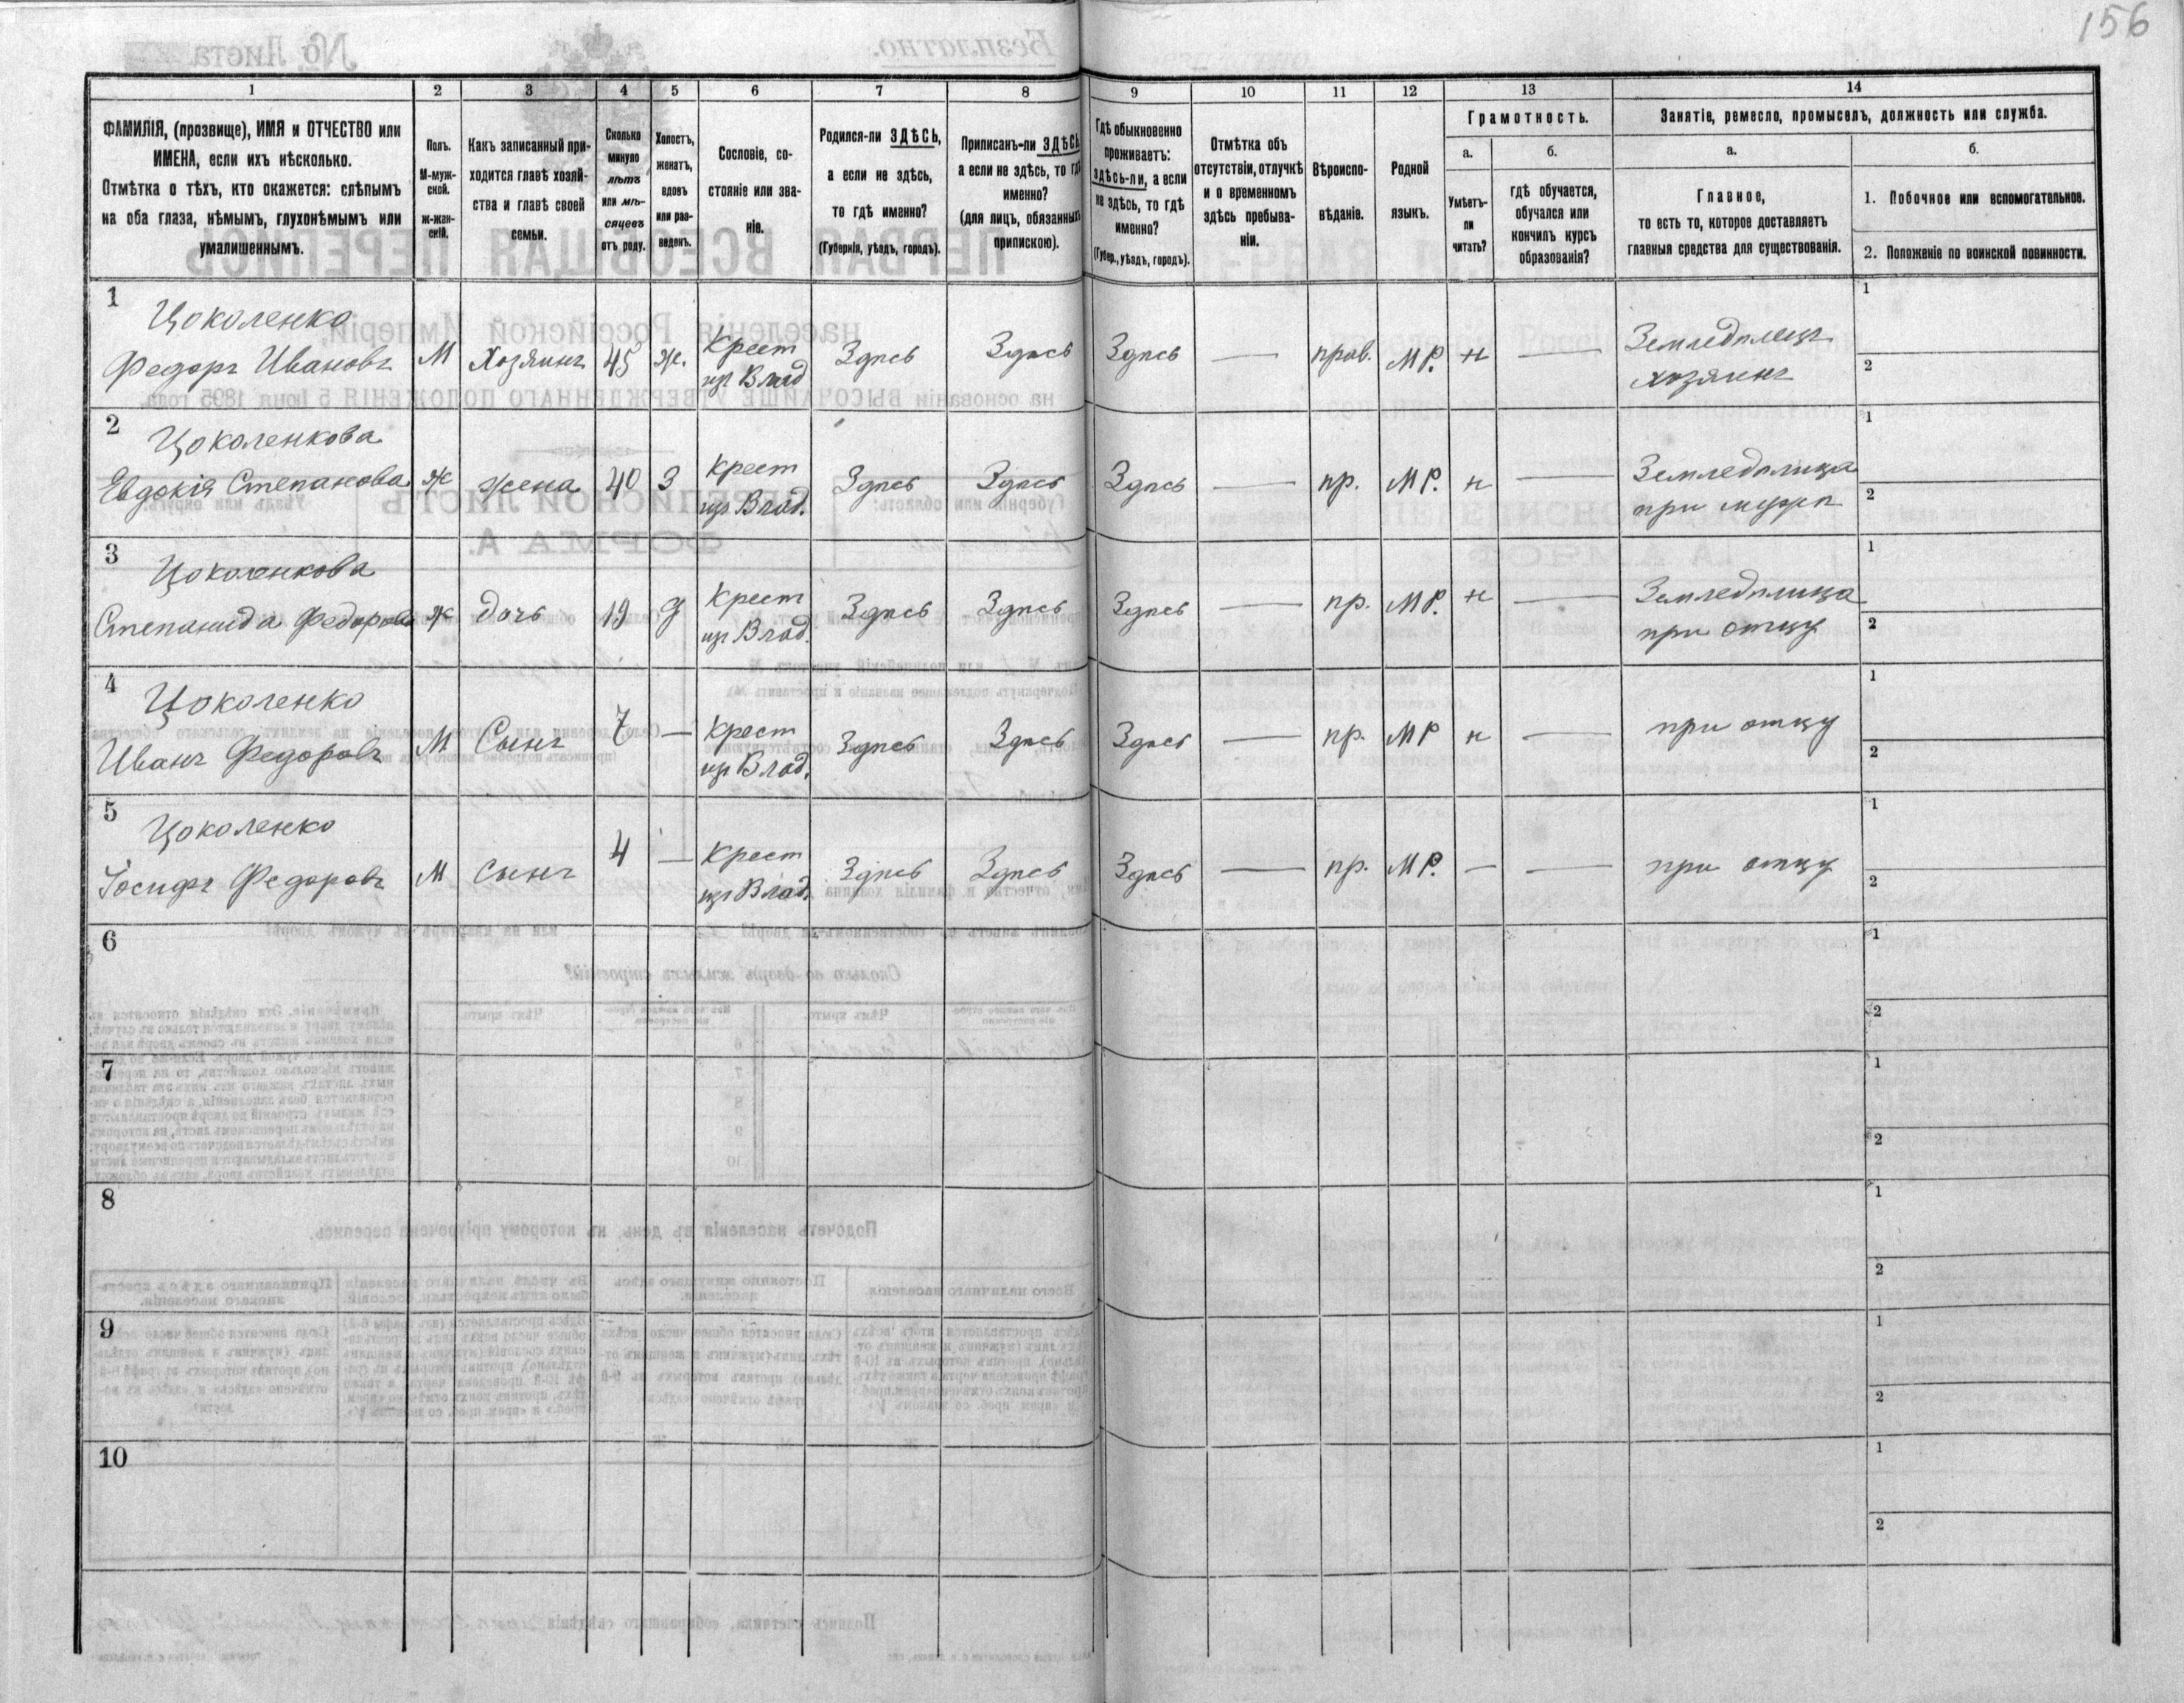 156
1 2 3 4 5 6 7 8 9 10 11 12 13 14
ФАМИЛІЯ, (прозвище), ИМЯ и ОТЧЕСТВО или
ИМЕНА, если ихъ нѣсколько.
Отмѣтка о тѣхъ, кто окажется: слѣпымъ
на оба глаза, нѣмымъ, глухонѣмымъ или
умалишеннымъ.
Полъ.
М-муж-
ской.
ж-жен-
скій.
Какъ записанный при-
ходится главѣ хозяй-
ства и главѣ своей
семьи.
Сколько
минуло
лѣтъ
или мѣ-
сяцевъ
отъ роду.
Холостъ,
женатъ,
вдовъ
или раз-
веденъ.
Сословіе, со-
стояніе или зва-
ніе.
Родился-ли ЗДѢСЬ,
а если не здѣсь,
то гдѣ именно?
(Губернія, уѣздъ, городъ).
Приписанъ-ли ЗДѢСЬ
а если не здѣсь, то гдѣ
именно?
(для лицъ, обязанныхъ
припискою).
Гдѣ обыкновенно
проживаетъ:
здѣсь-ли, а если
не здѣсь, то гдѣ
именно?
(Губер., уѣздъ, городъ).
Отмѣтка объ
отсутствіи, отлучкѣ
и о временномъ
здѣсь пребыва-
ніи.
Вѣроиспо-
вѣданіе.
Родной
языкъ.
Грамотность.
а.
Умѣетъ-
ли
читать?
б.
гдѣ обучается,
обучался или
кончилъ курсъ
образованія?
Занятіе, ремесло, промыселъ, должность или служба.
а.
Главное,
то есть то, которое доставляетъ
главныя средства для существованія.
б.
1. Побочное или вспомогательное.
2. Положеніе по воинской повинности.
1 Цоколенко
Федоръ Ивановъ М Хозяинъ 45 ж. Крест из Влад Здѣсь Здѣсь Здѣсь — прав. МР. н — Земледѣлецъ
хозяинъ
1
2
2 Цоколенкова
Евдокія Степанова ж жена 40 З Крест из Влад. Здѣсь Здѣсь Здѣсь — пр. МР. н — Земледѣлица
при мужѣ
1
2
3 Цоколенкова
Степанида Федорова ж дочь 19 д Крест из Влад. Здѣсь Здѣсь Здѣсь — пр. МР. н — Земледѣлица
при отцу
1
2
4 Цоколенко
Иванъ Федоровъ М Сынъ 7 — Крест из Влад. Здѣсь Здѣсь Здѣсь — пр. МР н — при отцу
1
2
5 Цоколенко
Іосифъ Федоровъ М сынъ 4 — Крест из Влад. Здѣсь Здѣсь Здѣсь — пр. МР. — — при отцу
1
2
6
1
2
7
1
2
8
1
2
9
1
2
10
1
2